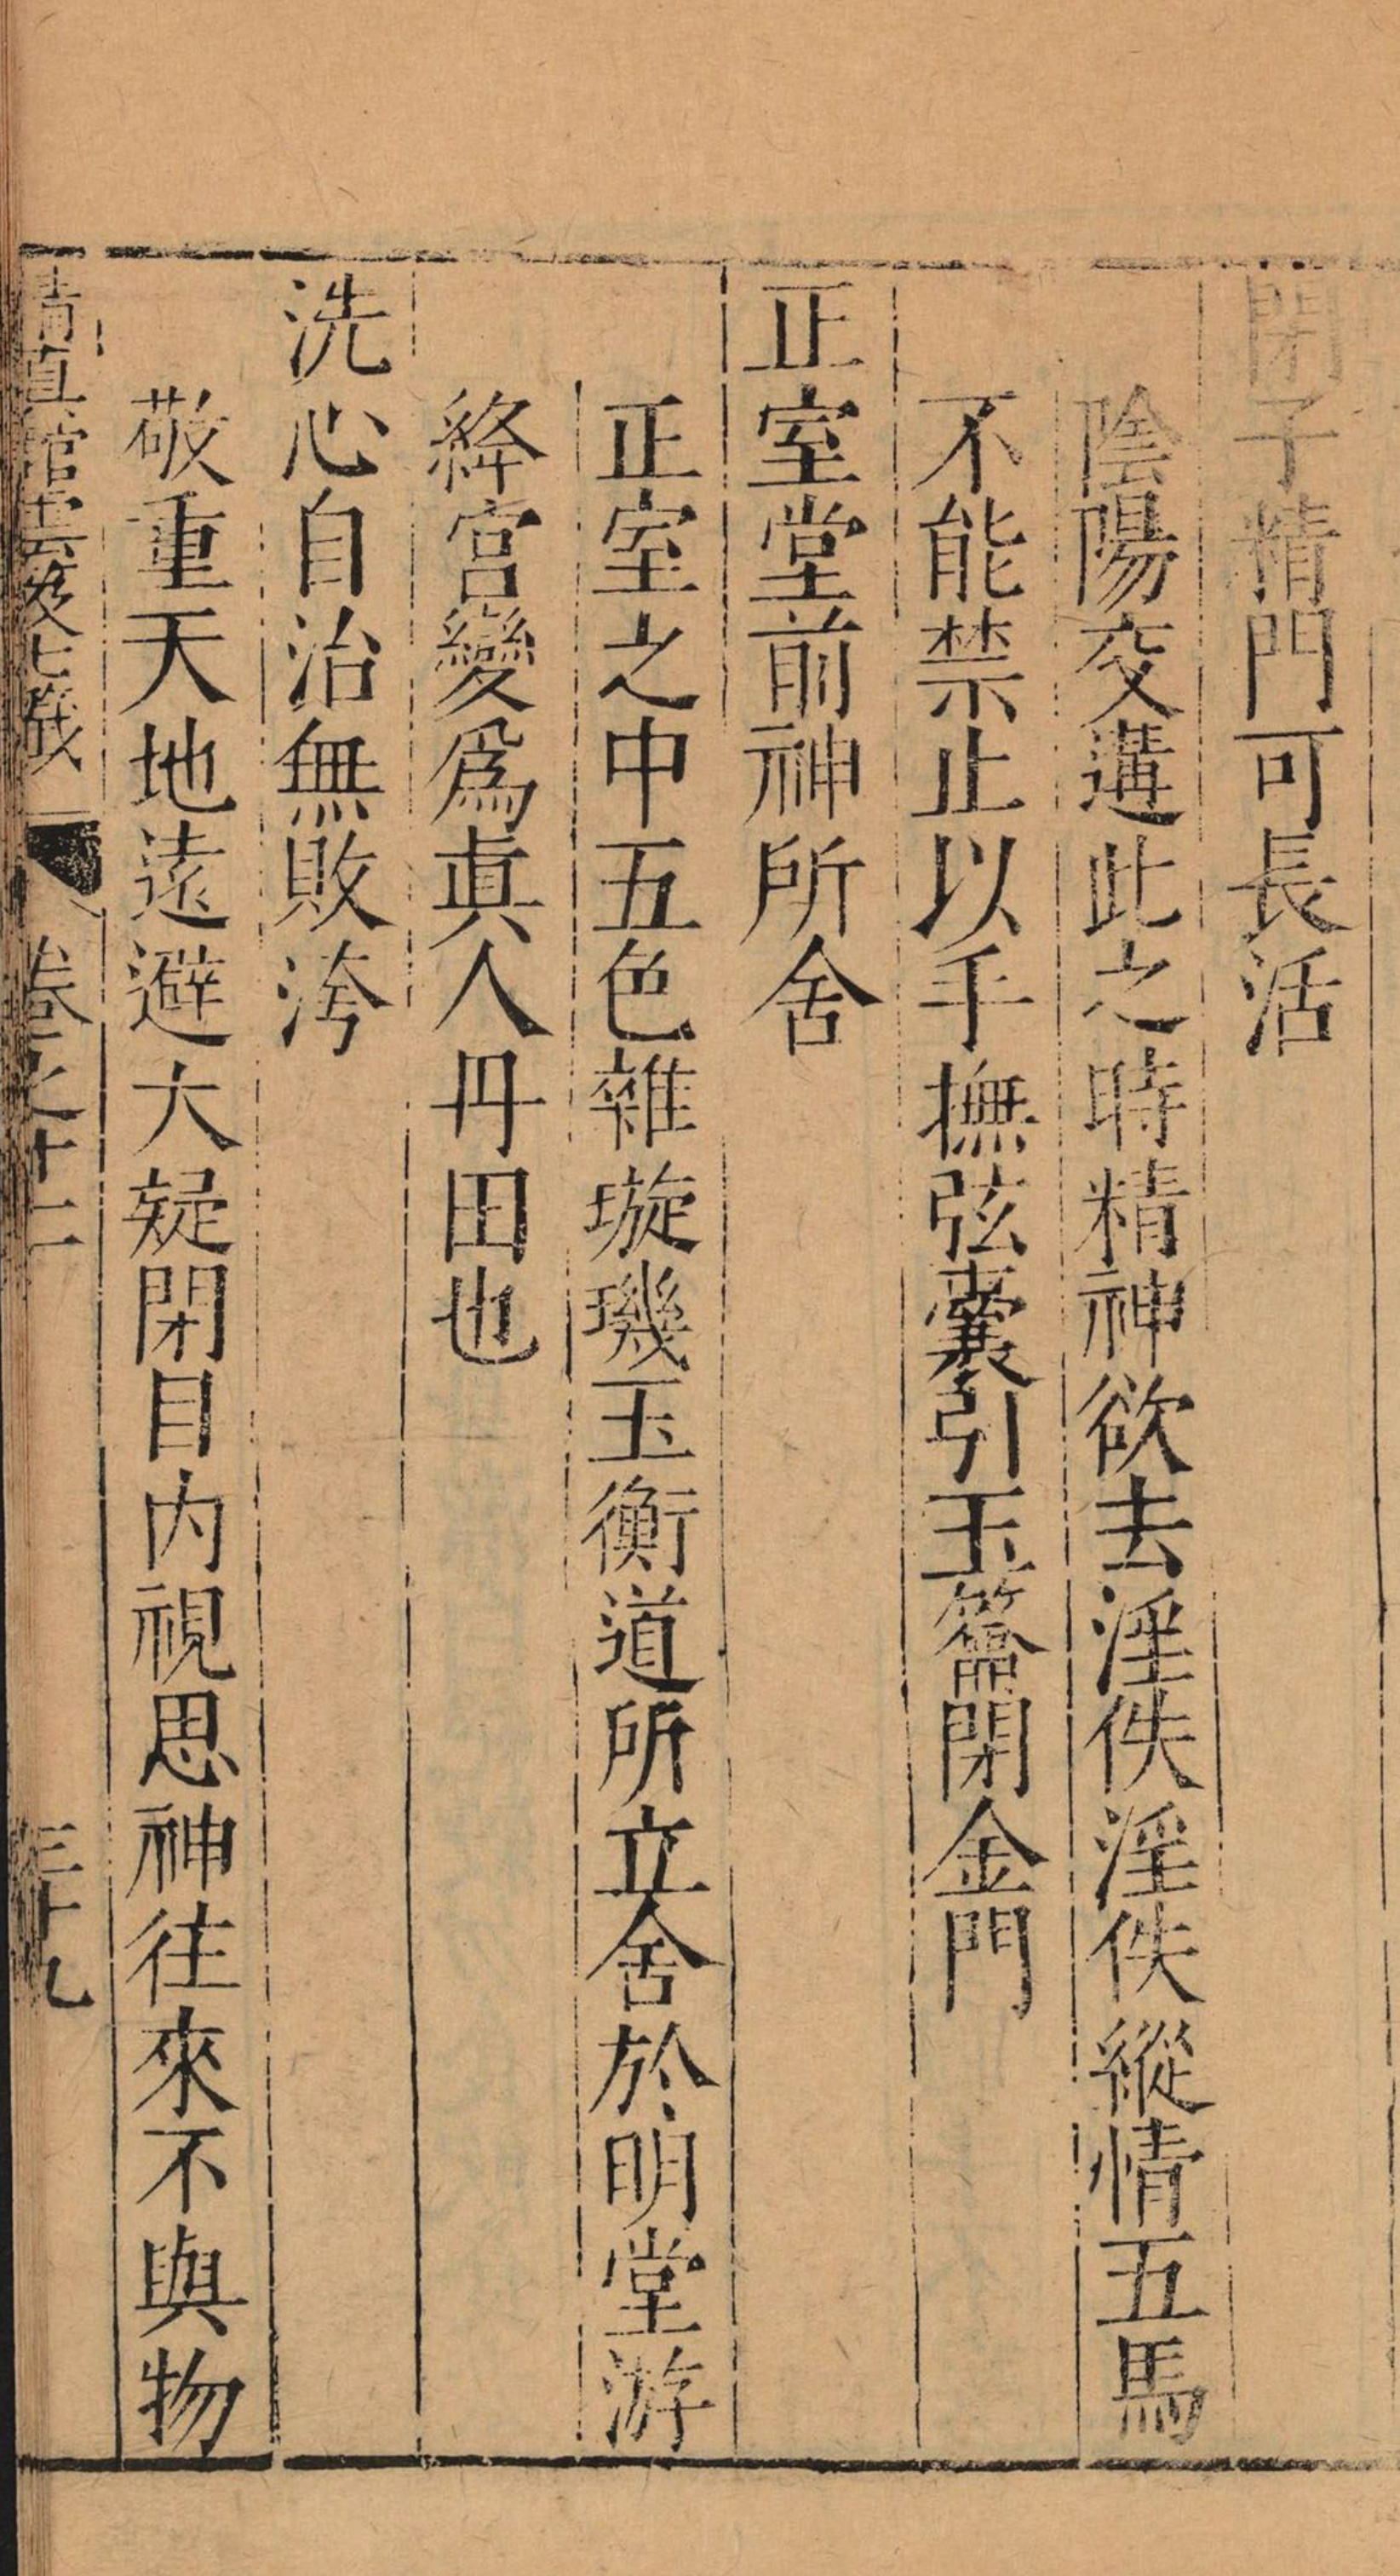 閉子精門可長活
陰陽交遘此之時精神欲去淫佚淫佚縱情五馬
不能禁止以手撫弦囊引玉籥閉金門
正室堂前神所舍
正室之中五色雜璇璣玉衡道所立舍於明堂游
絳宮變爲眞人丹田也
洗心自治無敗洿
敬重天地遠避大疑閉目內視思神往來不與物
清真館雲笈七籤 卷之十二 三十九